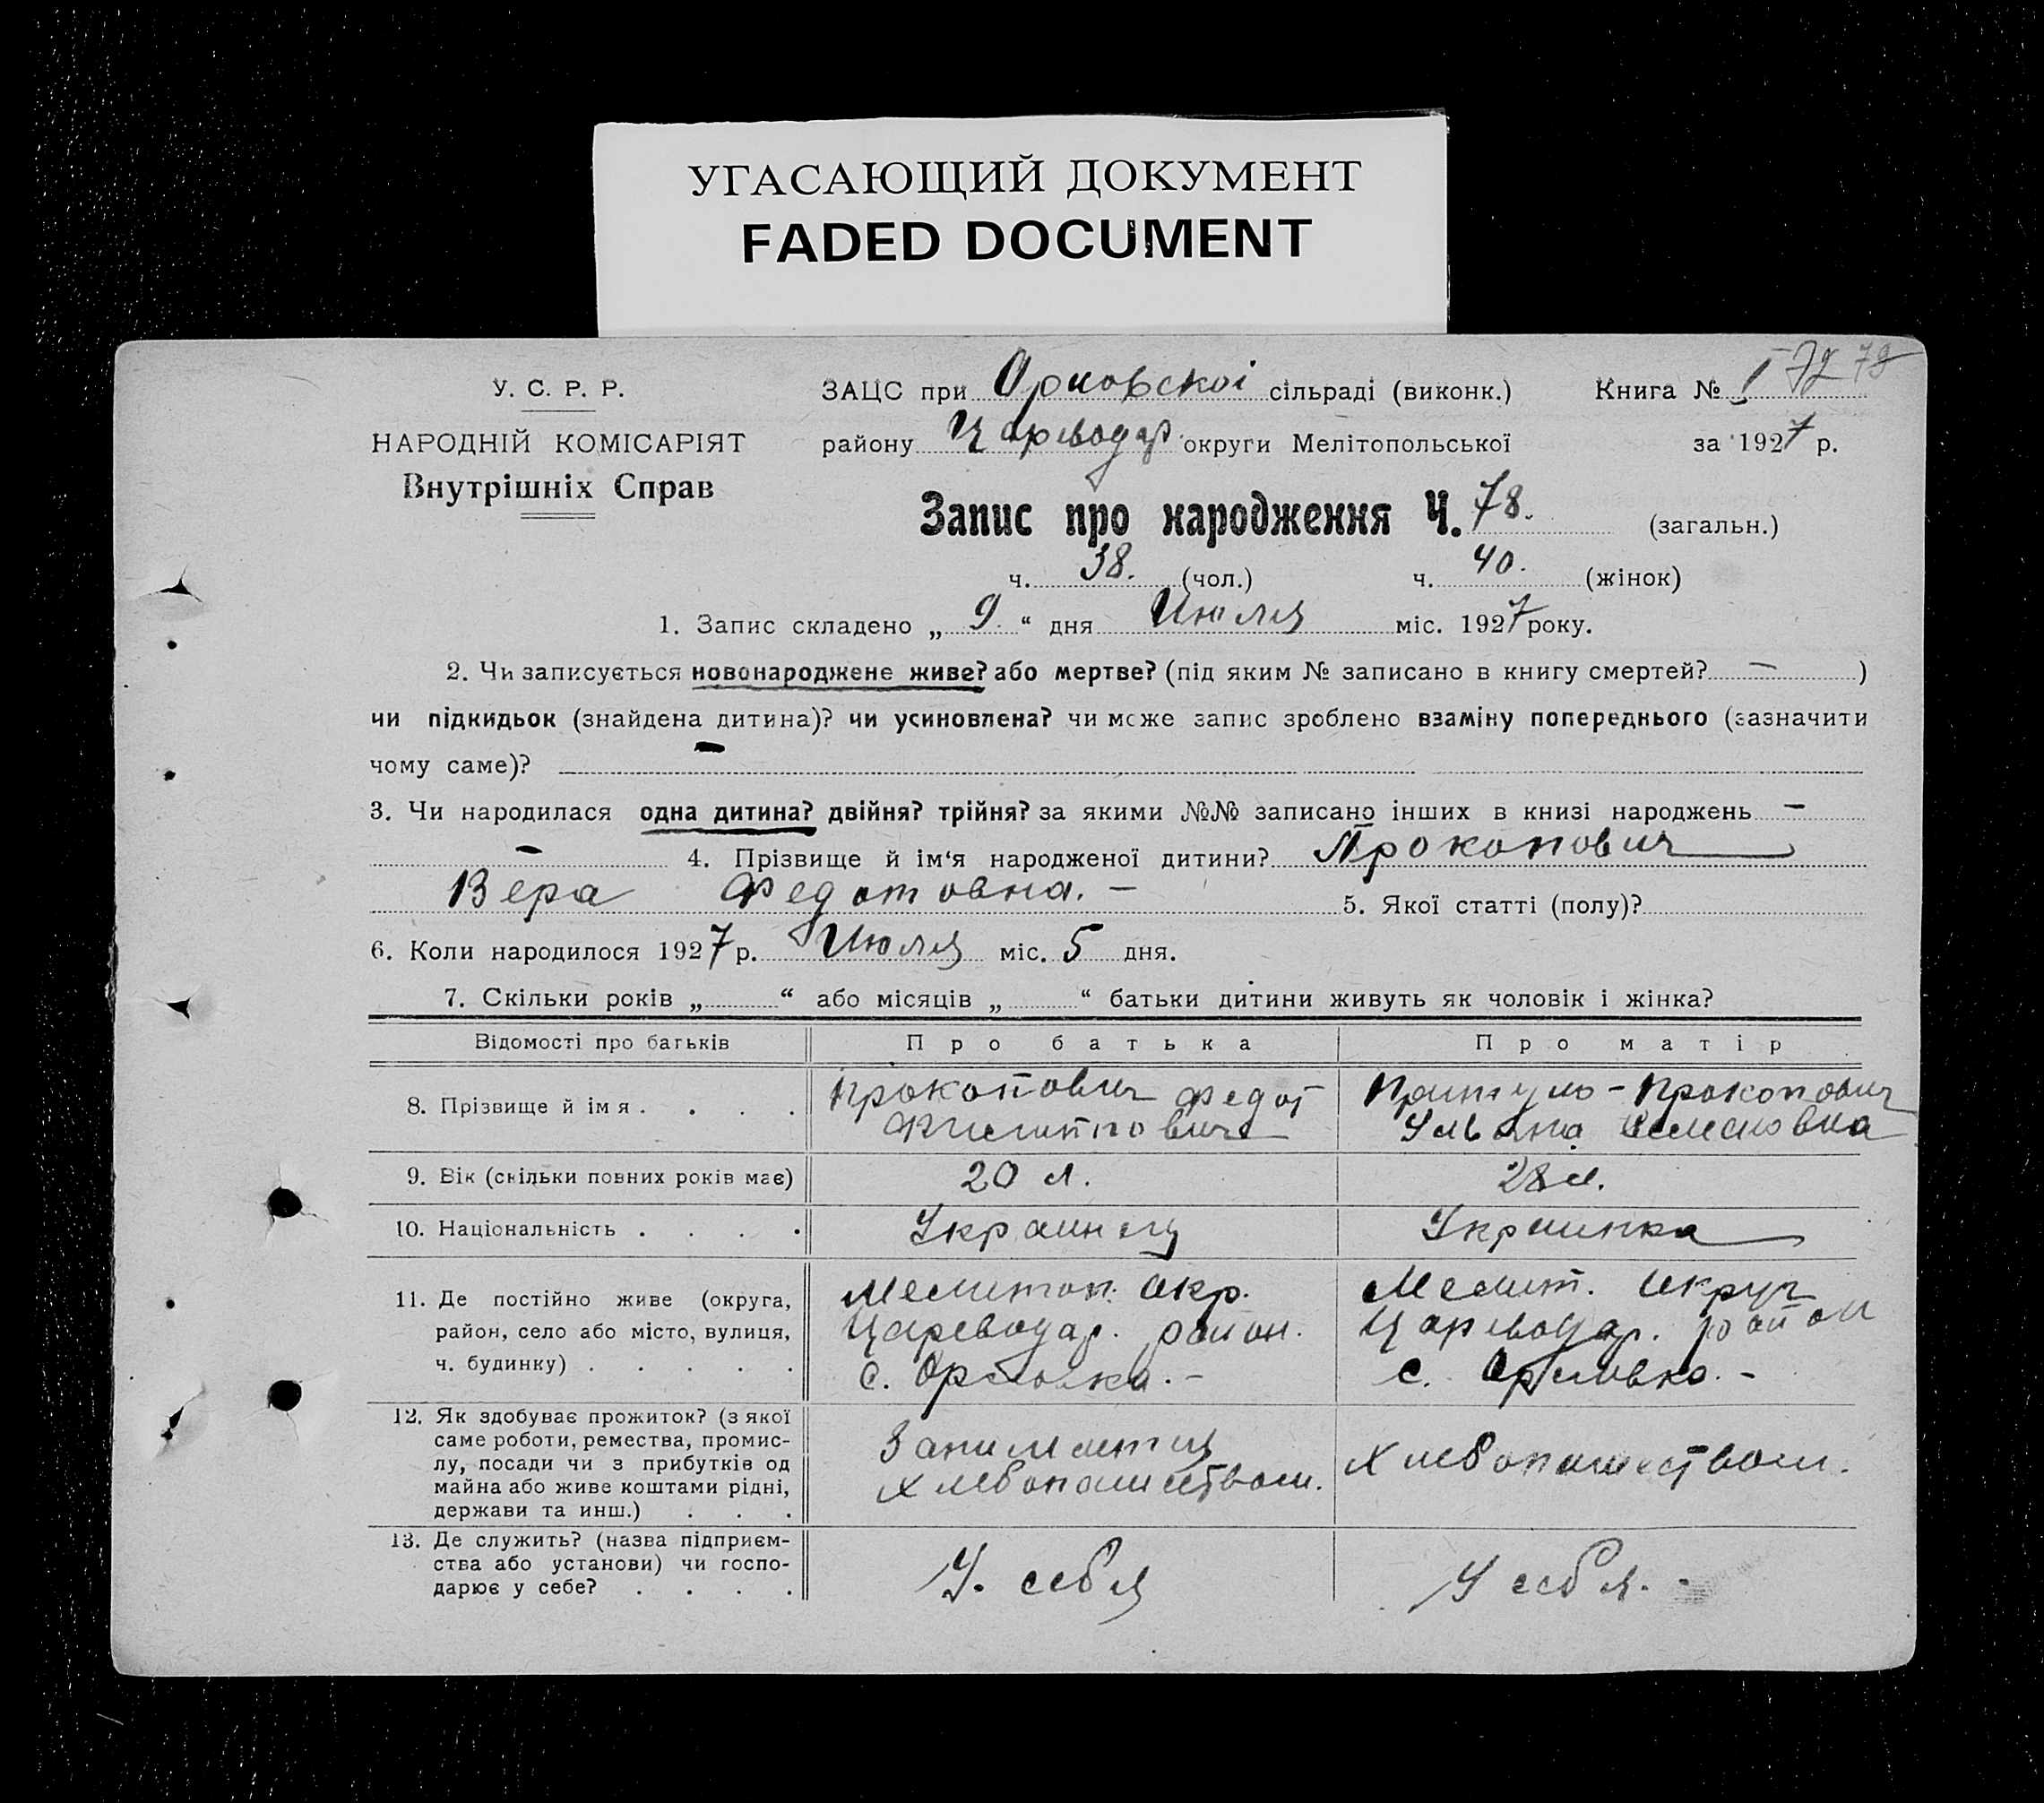 УГАСАЮЩИЙ ДОКУМЕНТ
FADED DOCUMENT
У. С. Р. Р.
НАРОДНІЙ КОМІСАРІЯТ
Внутрішніх Справ
ЗАЦС при Орловской сільраді (виконк.)
району Цареводар округи Мелітопольської
Книга № I 79 78
за 1927 р.
Запис про народження Ч. 78. (загальн.)
ч. 38. (чол.) ч. 40. (жінок)
1. Запис складено „ 9. “ дня Июля міс. 1927 року.
2. Чи записується новонароджене живе? або мертве? (під яким № записано в книгу смертей? — )
чи підкидьок (знайдена дитина)? чи усиновлена? чи може запис зроблено взаміну попереднього (зазначити
чому саме)? —
3. Чи народилася одна дитина? двійня? трійня? за якими №№ записано інших в книзі народжень —
— 4. Прізвище й ім‘я народженої дитини? Прокопович
Вера Федотовна. — 5. Якої статті (полу)?
6. Коли народилося 1927 р. Июля міс. 5 дня.
7. Скільки років „ “ або місяців „ “ батьки дитини живуть як чоловік і жінка?
Відомості про батьків Про батька Про матір
8. Прізвище й імя . . . .
Прокопович Федот
Филиппович
Притуло - Прокопович
Ульяна Семеновна
9. Вік (скільки повних років має) 20 л. 28 л.
10. Національність . . . . Украинец Украинка
11. Де постійно живе (округа,
район, село або місто, вулиця,
ч. будинку) . . . . .
Мелитоп. окр.
Цареводар. район.
с. Орловка. -
Мелит. округ
Цареводар. район
с. Орловка. -
12. Як здобуває прожиток? (з якої
саме роботи, ремества, промис-
лу, посади чи з прибутків од
майна або живе коштами рідні,
держави та инш.) . . .
Занимается
хлебопашеством.
хлебопашеством.
13. Де служить? (назва підприєм-
ства або установи) чи госпо-
дарює у себе? . . . .
У. себя
У себя. -